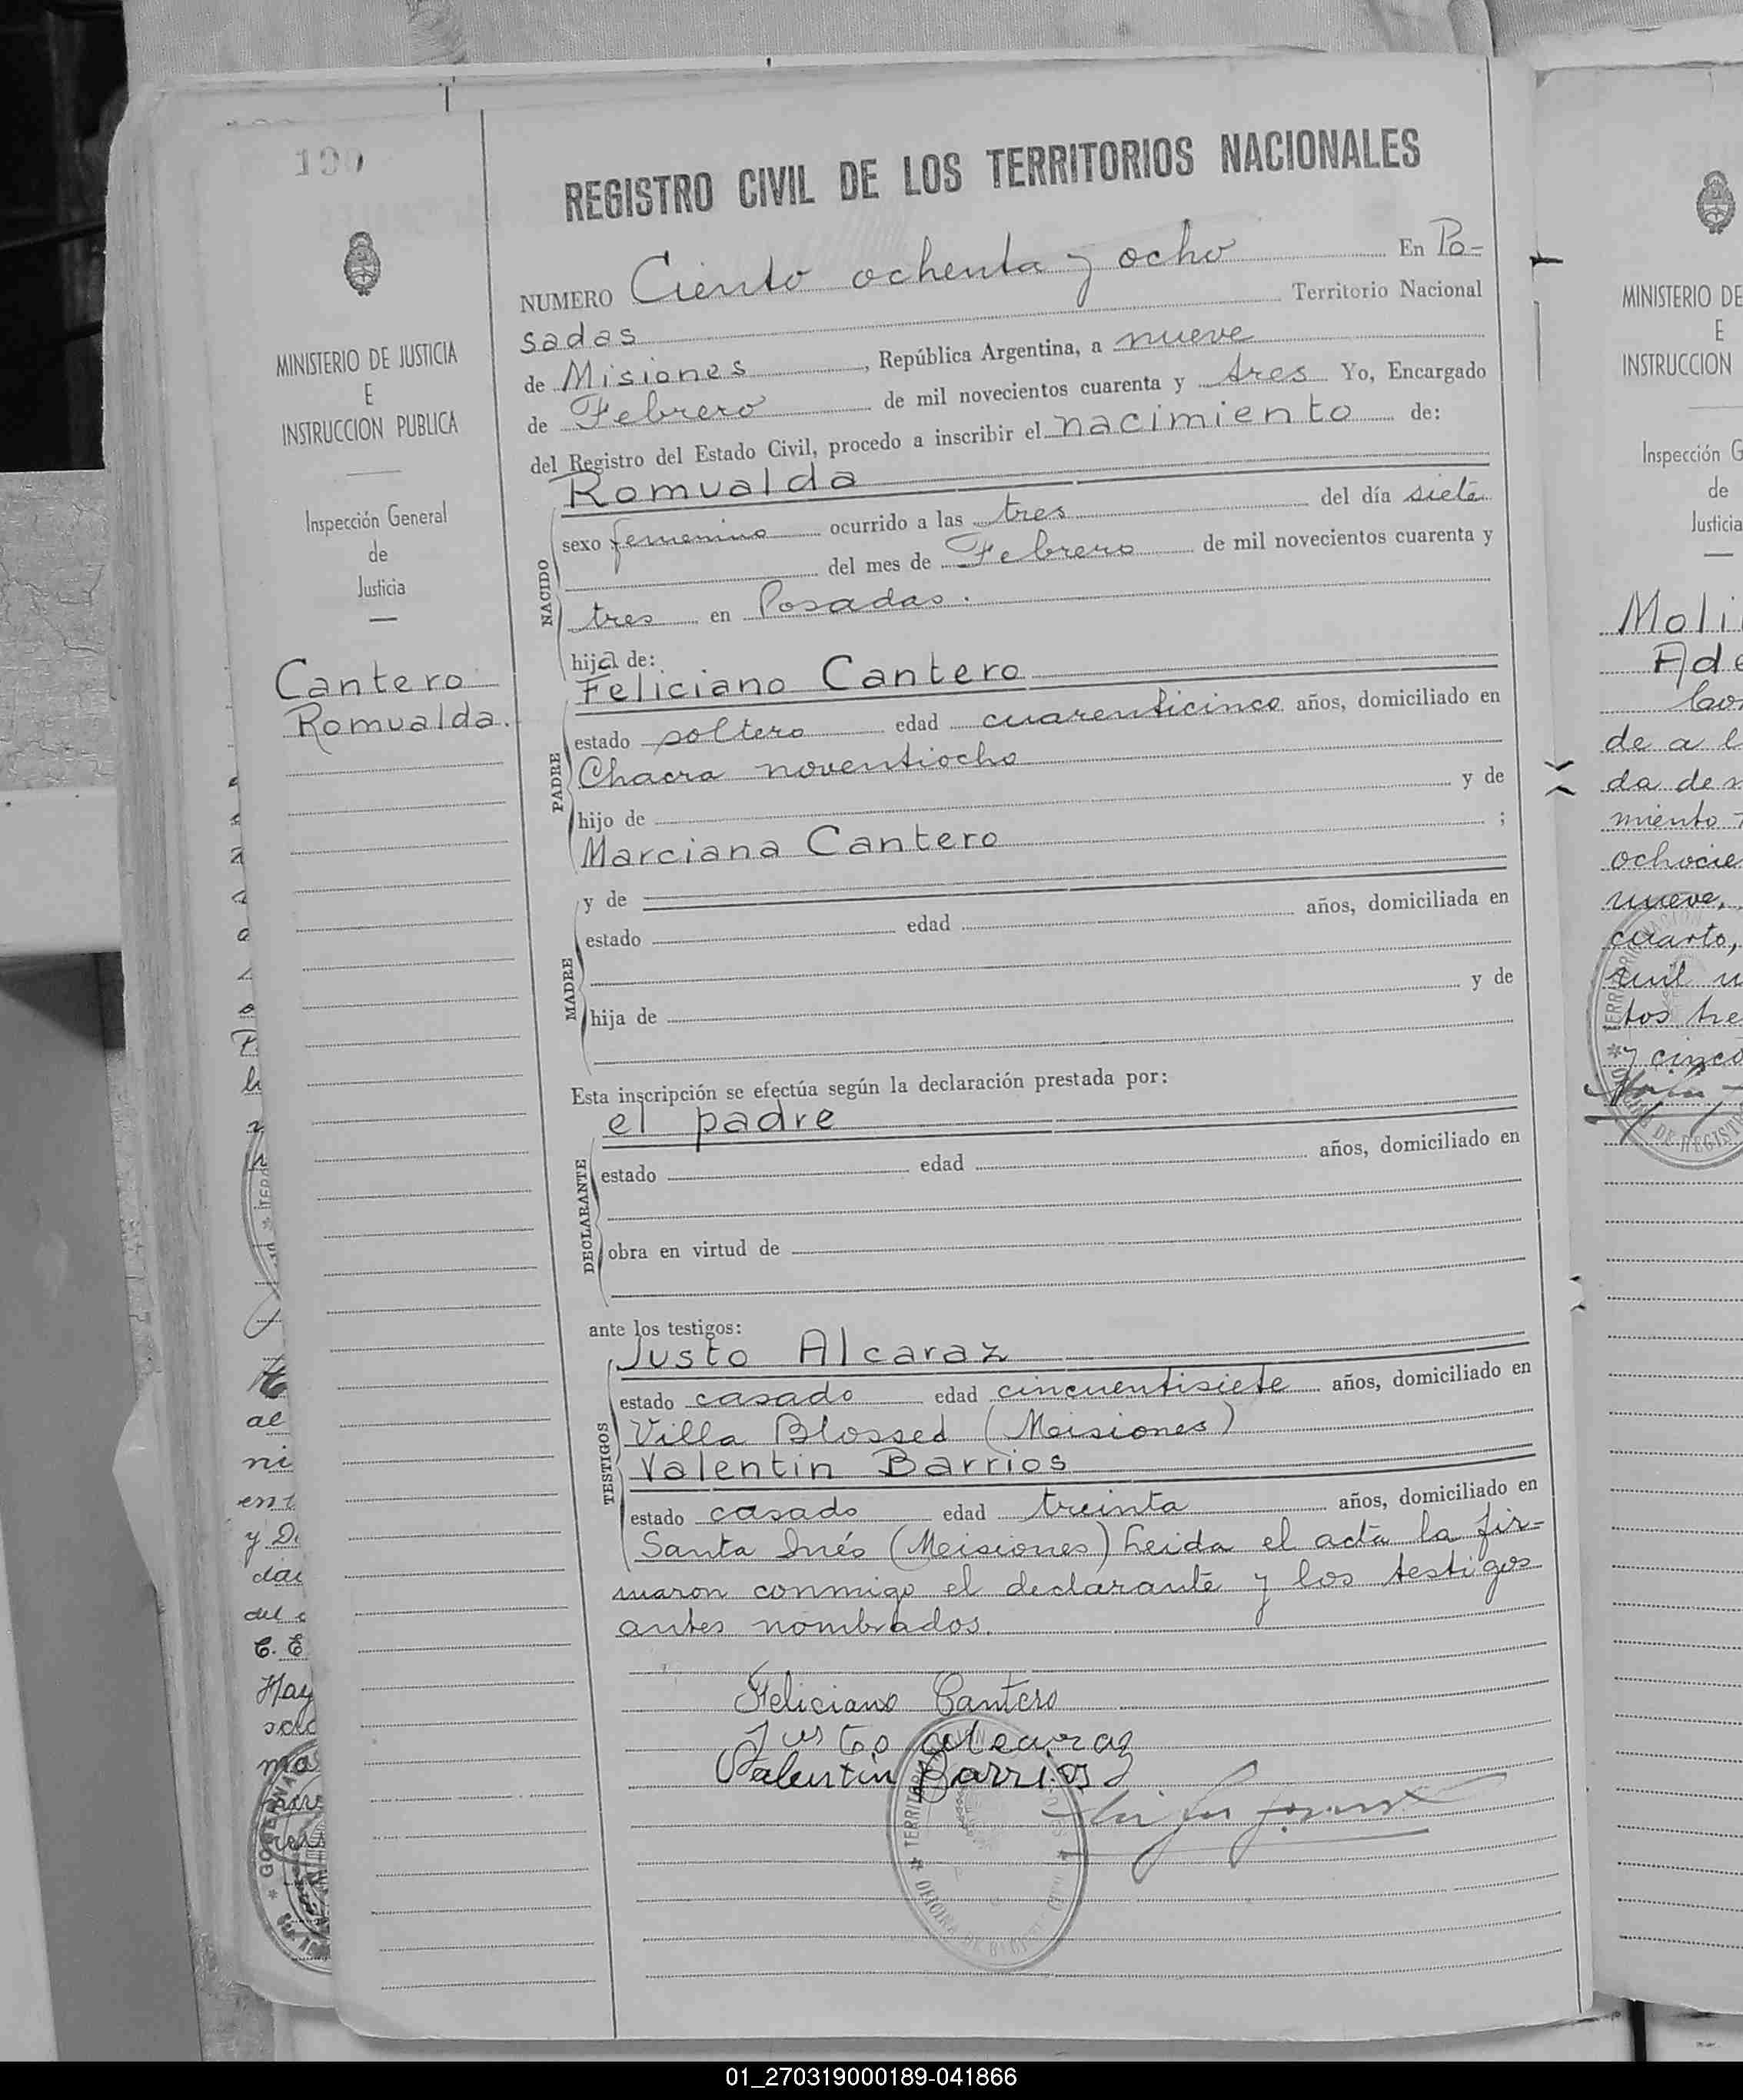 190
MINISTERIO DE JUSTICIA
E
INSTRUCCION PUBLICA
Inspección General
de
Justicia
Cantero
Romualda.
REGISTRO CIVIL DE LOS TERRITORIOS NACIONALES
NUMERO Ciento ochenta y ocho En Po=
sadas Territorio Nacional
de Misiones, República Argentina, a nueve
de Febrero de mil novecientos cuarenta y tres Yo, Encargado
del Registro del Estado Civil, procedo a inscribir el nacimiento de:
Romualda
NACIDO
sexo femenino ocurrido a las tres del día siete
del mes de Febrero de mil novecientos cuarenta y
tres en Posadas.
hija de:
Feliciano Cantero
PADRE
estado soltero edad cuarenticinco años, domiciliado en
Chacra noventiocho
hijo de y de
Marciana Cantero ;
y de
MADRE
estado edad años, domiciliada en
hija de y de
Esta inscripción se efectúa según la declaración prestada por:
el padre
DECLARANTE
estado edad años, domiciliado en
obra en virtud de
ante los testigos:
Justo Alcaraz
TESTIGOS
estado casado edad cincuentisiete años, domiciliado en
Villa Blossed (Misiones)
Valentin Barrios
estado casado edad treinta años, domiciliado en
Santa Inés (Misiones) Leida el acta la fir=
maron conmigo el declarante y los testigos
antes nombrados.
Feliciano Cantero
Justo alcaraz
Valentin Barrios
MINISTERIO DE
E
INSTRUCCION
Inspección G
de
Justicia
Moli
Ade
de a
da de
miento
ochocie
nueve,
cuarto,
mil n
tos tre
y cinco
al
ni
ent
y D
dad
del
C. E
May
ma
01_270319000189-041866